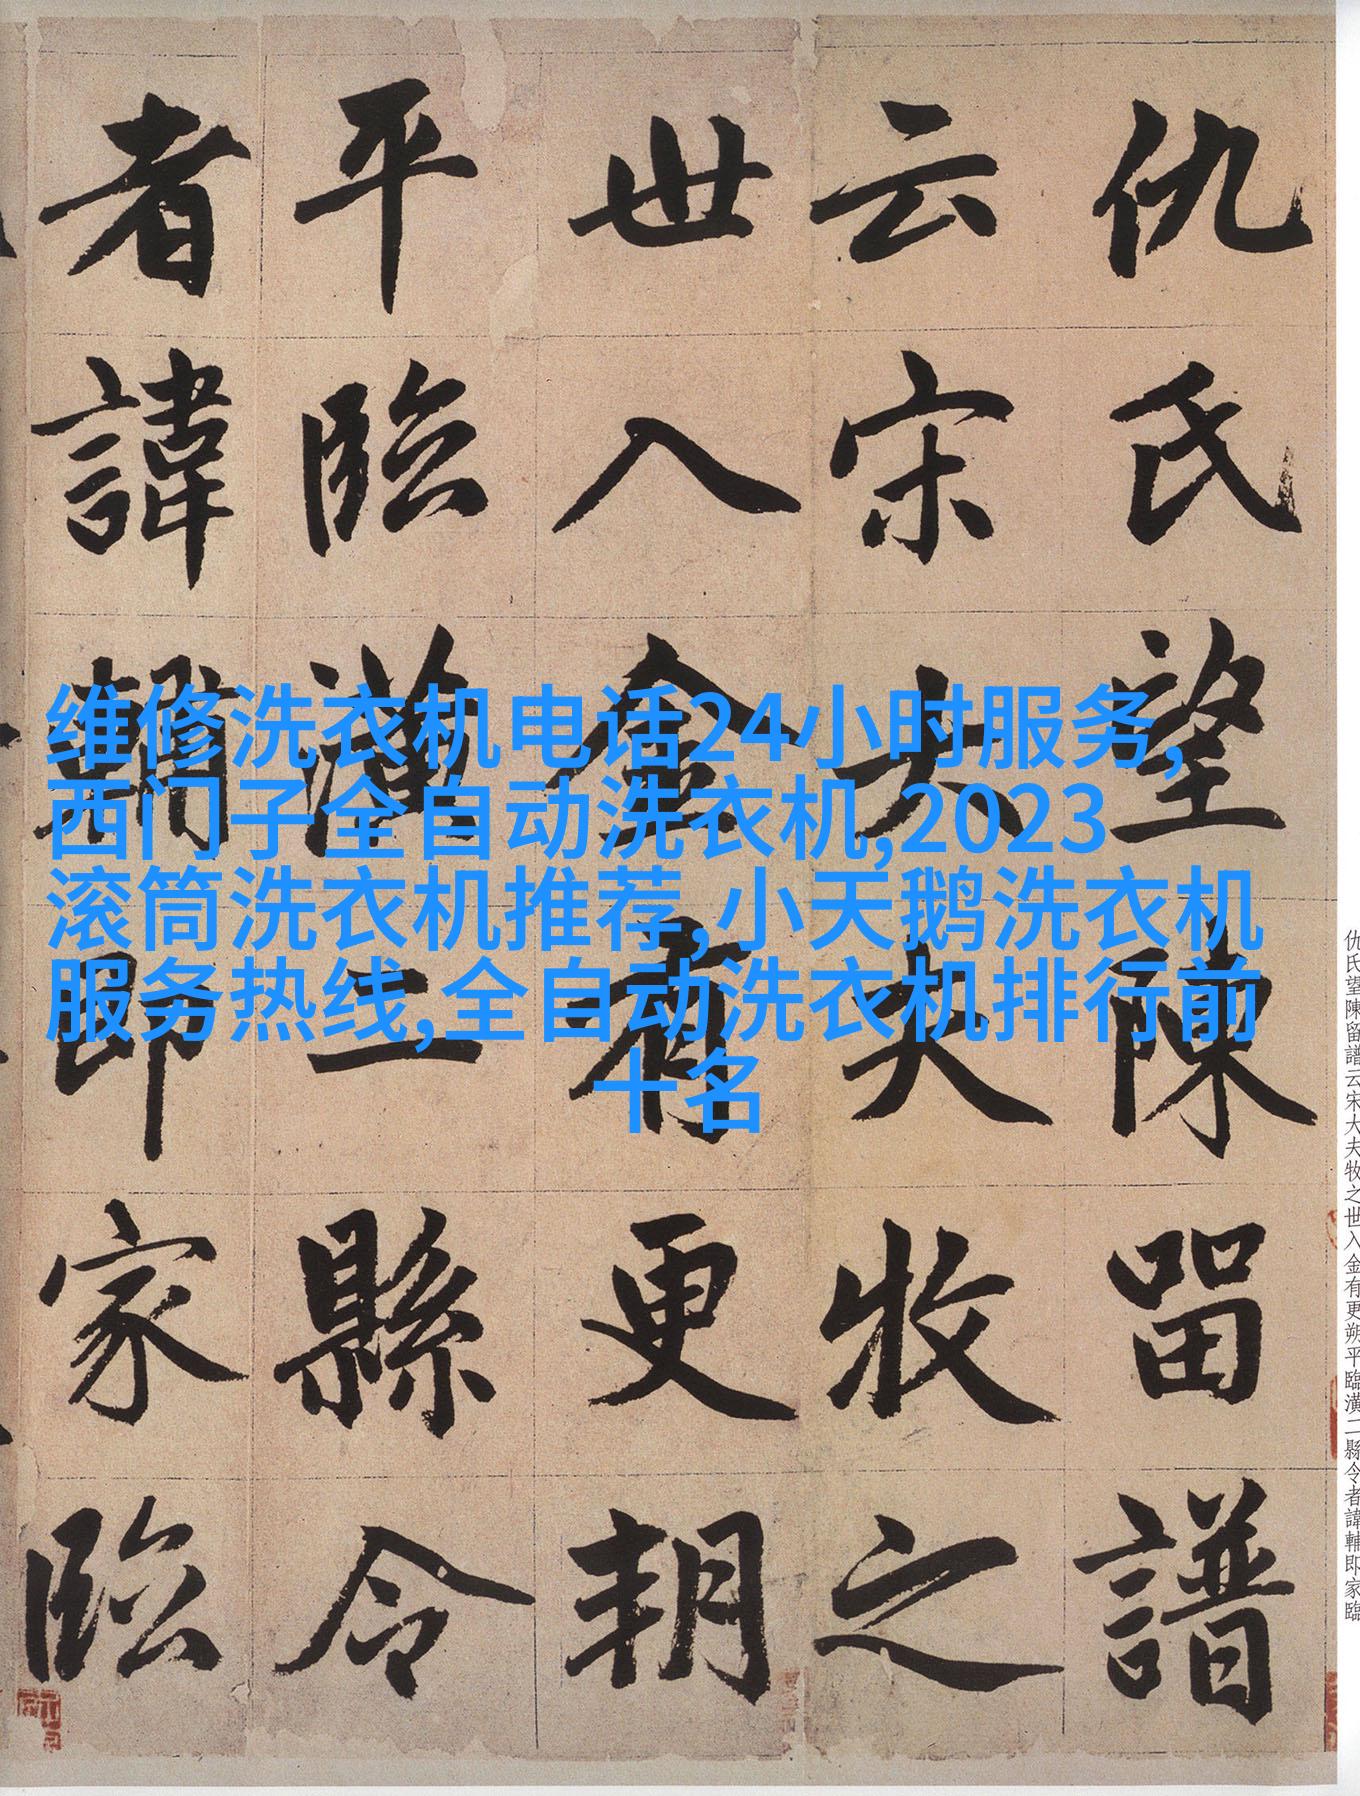 仇氏望陳留譜
云宋大夫牧之
世入金有更朔
平臨潢二縣令
者諱輔即家臨
维修洗衣机电话24小时服务,
西门子全自动洗衣机,2023
滚筒洗衣机推荐,小天鹅洗衣机
服务热线,全自动洗衣机排行前
十名
仇氏望陳留譜云宋大夫牧之世入金有更朔平臨潢二縣令者諱輔即家臨